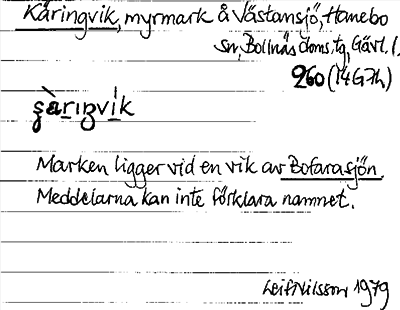 Käringvik, myrmark å Västansjö, Hanebo
sn, Bollnäs doms. tg, Gävl. l.
260 (14G7h)
Marken ligger vid en vik av Bofarasjön.
Meddelarna kan inte förklara namnet.
Leif Nilsson 1979